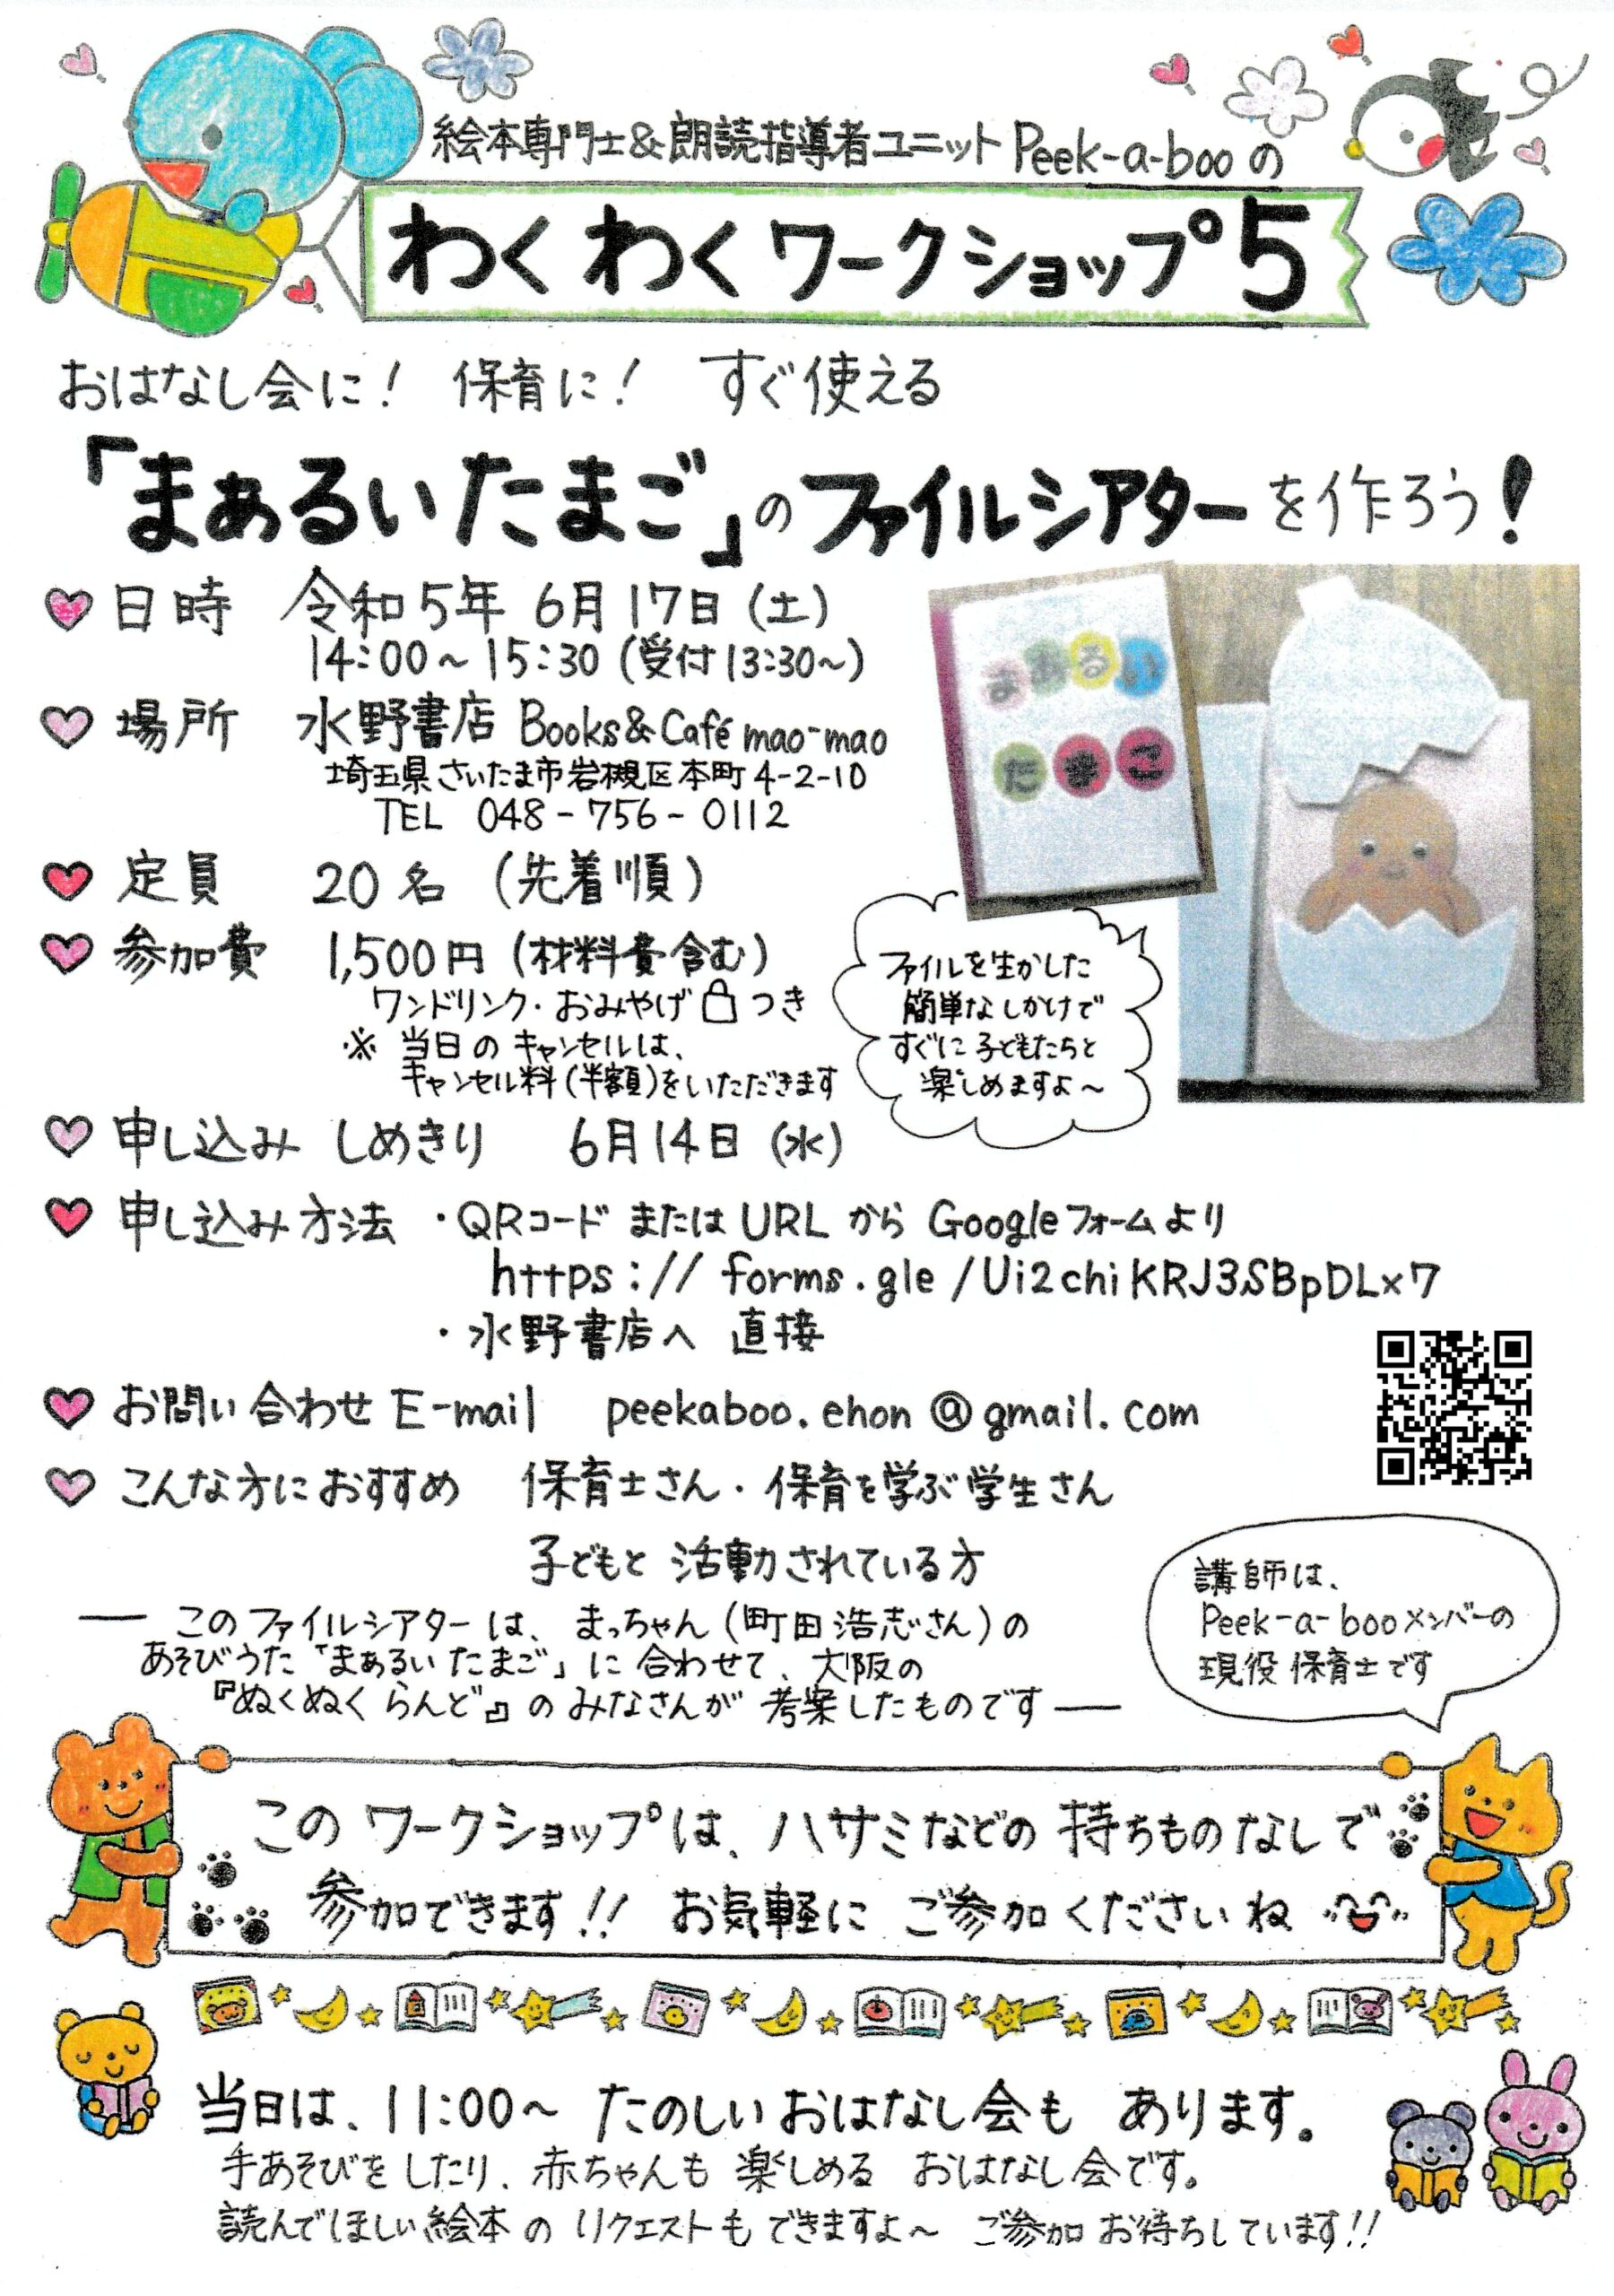 絵本専門士&朗読指導者ユニットPeek-a-booの
わくわくワークショップ5
おはなし会に! 保育に! すぐ使える
「まぁるいたまご」のファイルシアターを作ろう!
日時 令和5年 6月17日(土)
14:00~15:30(受付13:30~)
場所 水野書店 Books&Café mao-mao
埼玉県さいたま市岩槻区本町4-2-10
TEL 048-756-0112
定員 20名 (先着順)
参加費 1,500円(材料費含む)
ワンドリンク・おみやげつき
※当日のキャンセルは、
キャンセル料(半額)をいただきます
まぁるい
たまご
ファイルを生かした
簡単なしかけで
すぐに子どもたちと
楽しめますよ~
申し込み しめきり 6月14日(水)
申し込み方法 ・QRコードまたはURLから Googleフォームより
https://forms.gle/Ui2chiKRJ3SBpDLx7
・水野書店へ 直接
お問い合わせ E-mail peekaboo.ehon@gmail.com
こんな方におすすめ 保育士さん・保育を学ぶ学生さん
子どもと活動されている方
— このファイルシアターは、まっちゃん(町田浩志さん)の
あそびうた「まぁるいたまご」に合わせて、大阪の
『ぬくぬくらんど』のみなさんが考案したものです —
講師は、
Peek-a-booメンバーの
現役保育士です
このワークショップは、ハサミなどの持ちものなしで
参加できます!! お気軽にご参加くださいね
当日は、11:00~ たのしいおはなし会もあります。
手あそびをしたり、赤ちゃんも楽しめるおはなし会です。
読んでほしい絵本のリクエストもできますよ~ ご参加お待ちしています!!